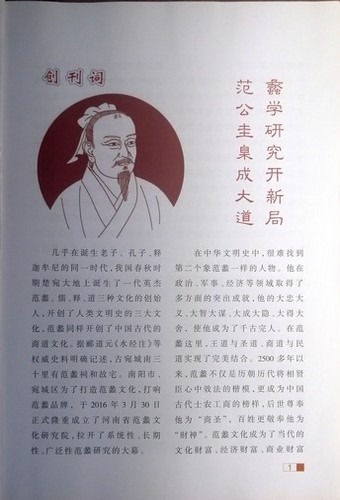 创刊词
蠡学研究开新局
范公圭臬成大道
几乎在诞生老子、孔子、释
迦牟尼的同一时代，我国春秋时
期楚宛大地上诞生了一代英杰
范蠡。儒、释、道三种文化的创始
人，开创了人类文明史的三大文
化，范蠡同样开创了中国古代的
商道文化。据郦道元《水经注》等
权威史料明确记述，古宛城南三
十里有范蠡祠和故宅。南阳市、
宛城区为了打造范蠡文化，打响
范蠡品牌，于 2016 年 3 月 30 日
正式隆重成立了河南省范蠡文
化研究院，拉开了系统性、长期
性、广泛性范蠡研究的大幕。
在中华文明史中，很难找到
第二个象范蠡一样的人物。他在
政治、军事、经济等领域取得了
多方面的突出成就，他的大忠大
义、大智大谋、大成大隐、大得大
舍，使他成为了千古完人。在范
蠡这里，王道与圣道、商道与民
道实现了完美结合。2500 多年以
来，范蠡不仅是历朝历代将相贤
臣心中效法的楷模，更成为中国
古代士农工商的榜样，后世尊奉
他为“商圣”，百姓更敬奉他为
“财神”。范蠡文化成为了当代的
文化财富、经济财富、商业财富
1